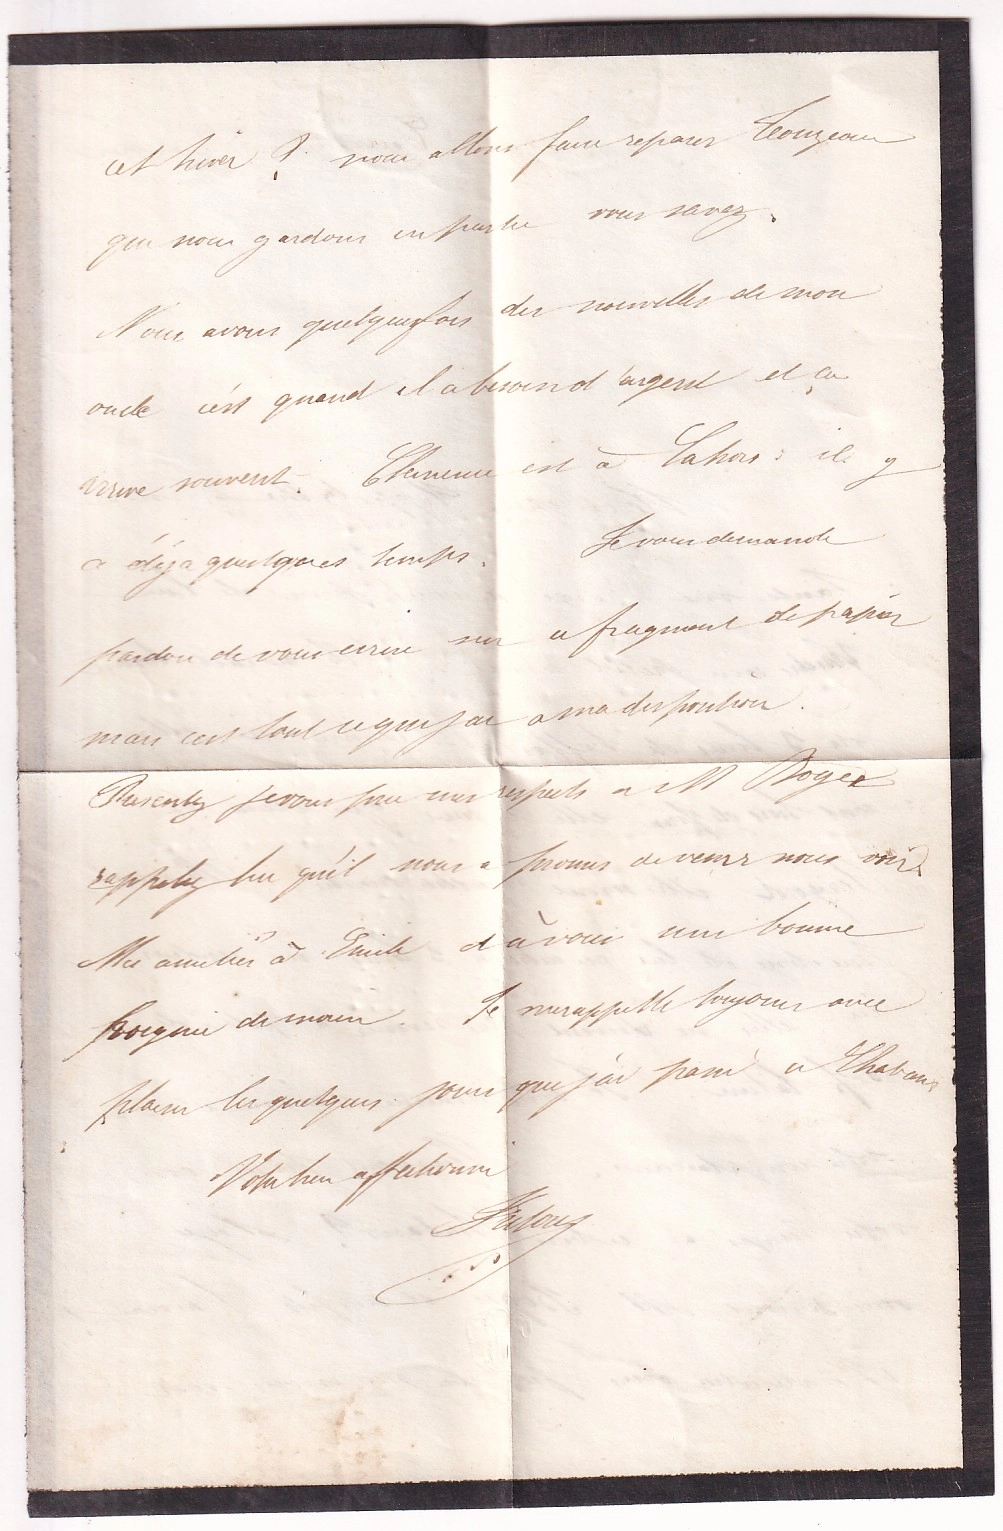 cet hiver ? nous allons faire reparer Touzeau
que nous gardons en partie vous savez.
Nous avons quelquefois des nouvelles de mon
oncle c'est quand il a besoin d'argent et ça
arrive souvent. Clémence est à Cahors : il y
a déja quelques temps. Je vous demande
pardon de vous ecrire sur a fragment de papier
mais c'est tout ce que j'ai a ma disposition.
Presentez je vous prie mes respects a M Roger
rappelez lui qu'il nous a promis de venir nous voir
Mes amitiés à Emile et à vous une bonne
poignée de main. Je me rappelle toujours avec
plaisir les quelques jours que j'ai passé a Chabans
Votre bien affectionné